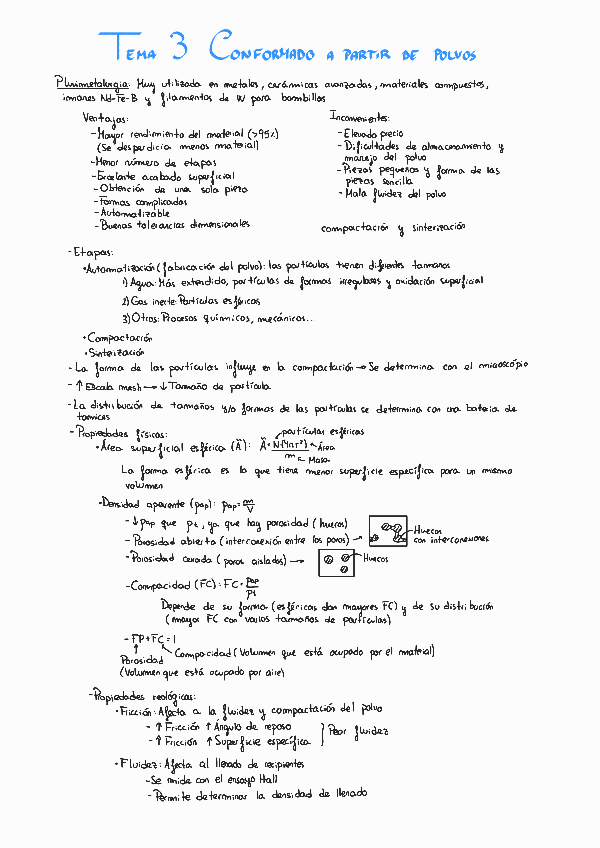 TEMA 3 CONFORMADO A PARTIR DE POLVOS
Pluvimetalurgia: Muy utilizada en metales, cerámicas avanzadas, materiales compuestos,
imanes Nd-Fe-B y filamentos de W para bombillas
Ventajas:
-Mayor rendimiento del material (>95%)
(Se desperdicia menos material)
-Menor número de etapas
-Excelente acabado superficial
-Obtención de una sola pieza
-Formas complicadas
-Automatizable
-Buenas tolerancias dimensionales
Inconvenientes:
-Elevado precio
-Dificultades de almacenamiento y
manejo del polvo
-Piezas pequeñas y forma de las
piezas sencilla
-Mala fluidez del polvo
compactación y sinterización
-Etapas:
•Automatización (fabricación del polvo): las partículas tienen diferentes tamaños
1) Agua: Más extendido, partículas de formas irregulares y oxidación superficial
2) Gas inerte: Partículas esféricas
3) Otros: Procesos químicos, mecánicos...
•Compactación
•Sinterización
-La forma de las partículas influye en la compactación → Se determina con el microscópio
-↑ Escala mesh → ↓ Tamaño de partícula
-La distribución de tamaños y/o formas de las partículas se determina con una batería de
tamices
-Propiedades físicas:
partículas esféricas
•Área superficial esférica (Ã): Ã = N(4πr²) ← Área
m ← Masa
La forma esférica es la que tiene menor superficie específica para un mismo
volumen
•Densidad aparente (ρap): ρap = m/V
-↓ρap que ρt, ya que hay porosidad (huecos)
-Porosidad abierta (interconexión entre los poros) →
Huecos
con interconexiones
-Porosidad cerrada (poros aislados) →
Huecos
-Compacidad (FC): FC = ρap/ρt
Depende de su forma (esféricas dan mayores FC) y de su distribución
(mayor FC con varios tamaños de partículas)
-FP+FC=1
Compacidad (Volumen que está ocupado por el material)
Porosidad
(Volumen que está ocupado por aire)
-Propiedades reológicas:
•Fricción: Afecta a la fluidez y compactación del polvo
-↑ Fricción ↑ Ángulo de reposo
-↑ Fricción ↑ Superficie específica
Peor fluidez
•Fluidez: Afecta al llenado de recipientes
-Se mide con el ensayo Hall
-Permite determinar la densidad de llenado